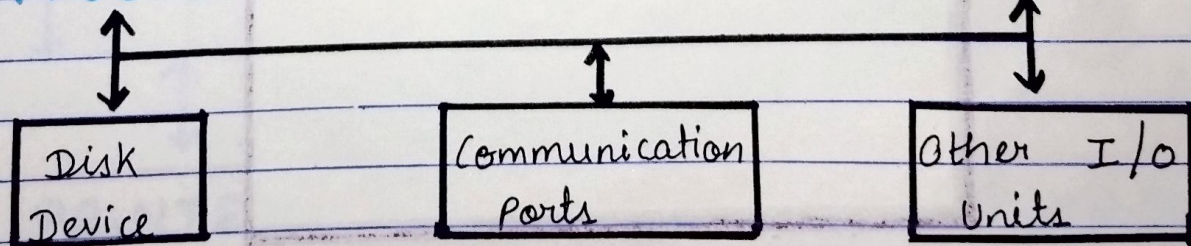 Disk
Device
Communication
Ports
Other I/O
Units